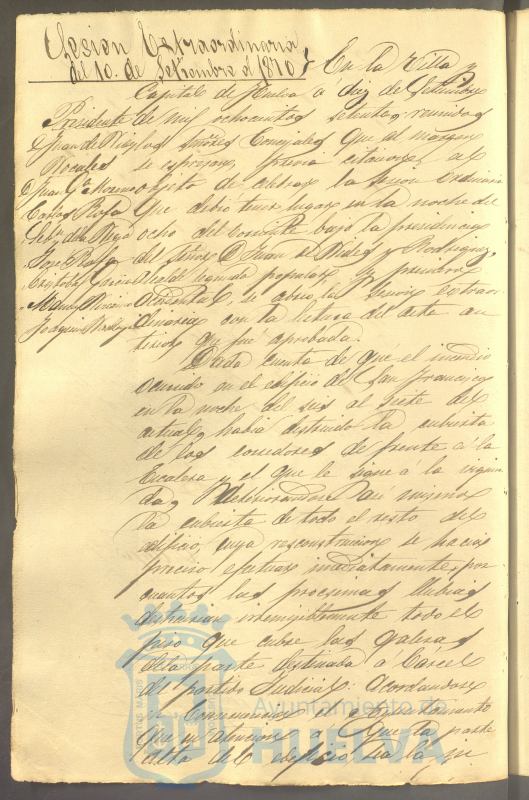 Sesion Extraordinaria
del 10. de Setiembre de 1870
En la Villa y
Capital de Huelva a diez de Setiembre
de mil ochocientos setenta, reunidos
los Señores Concejales que al margen
se espresan, previa citacion, al
objeto de celebrar la sesion Ordinaria
que debio tener lugar en la noche del
ocho del corriente bajo la presidencia
del Señor D. Juan de
Alcalde popular y primero
accidental, se abrio la Sesion extraor
dinaria con la lectura del acta an
terior que fue aprobada.
Presidente
D. Juan de
Vocales
D. Juan Ga. Moreno
Carlos Rofa
Jose Rofa
Cristobal Garcia
Joaquin
Dada cuenta de que el incendio
ocurrido en el edificio de San Francisco
en la noche del seis al siete del
actual, habia destruido la cubierta
de los corredores de frente á la
Escalera y el que le sigue á la izquier
da, asi mismo
la cubierta de todo el resto del
edificio, cuya reconstruccion se hacia
preciso efectuar inmediatamente, por
cuantos las procsimas llubias
destruirian todo el
piso que cubre las galeras
dela parte destinada a Carcel
del partido Judicial: acordandose
el Ayuntamiento
que en atencion a que la parte
alta del edificio es la que
Ayuntamiento de
HUELVA